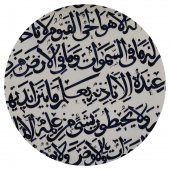 لا هو الحي القيوم لا تا
له ما في السموات وما في الأرض م
عنده إلا بإذنه يعلم ما بين أيديه
ولا يحيطون بشيء من علمه إلا
والأرض ولا